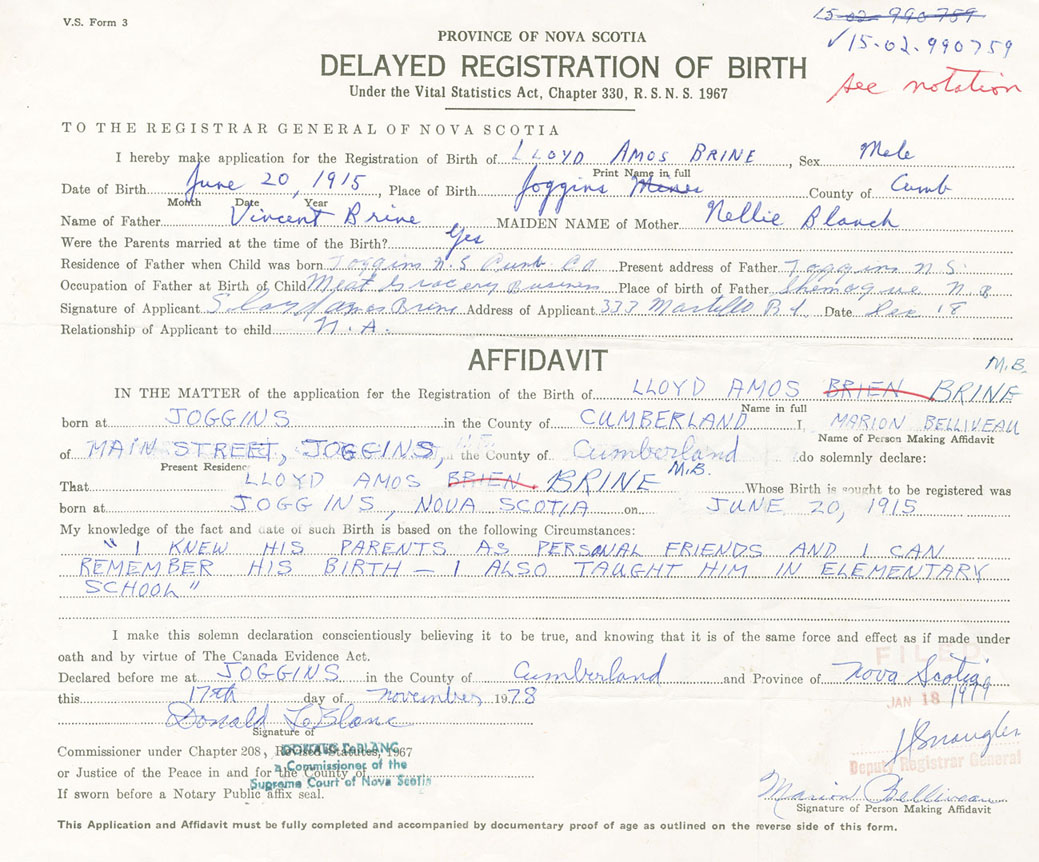 V.S. Form 3
15-02-990759
✓15-02-990759
PROVINCE OF NOVA SCOTIA
DELAYED REGISTRATION OF BIRTH
see notation
Under the Vital Statistics Act, Chapter 330, R.S.N.S. 1967
TO THE REGISTRAR GENERAL OF NOVA SCOTIA
I hereby make application for the Registration of Birth of LLOYD AMOS BRINE, Sex Male
Print Name in full
Date of Birth June 20, 1915, Place of Birth Joggins Mines County of Cumb
Month Date Year
Name of Father Vincent Brine MAIDEN NAME of Mother Nellie Blanch
Were the Parents married at the time of the Birth? Yes
Residence of Father when Child was born Joggins N.S. Cumb. Co Present address of Father Joggins N.S.
Occupation of Father at Birth of Child Meat Grocery Business Place of birth of Father Shemogue N.B
Signature of Applicant Lloyd Amos Brine Address of Applicant 333 Martello Date Dec 18
Relationship of Applicant to child N.A.
AFFIDAVIT
M.B.
IN THE MATTER of the application for the Registration of the Birth of LLOYD AMOS BRIEN BRINE
Name in full
born at JOGGINS in the County of CUMBERLAND I, MARION BELLIVEAU
Name of Person Making Affidavit
of MAIN STREET, JOGGINS, the County of Cumberland do solemnly declare:
Present Residence
That LLOYD AMOS BRIEN BRINE M.B. Whose Birth is sought to be registered was
born at JOGGINS, NOVA SCOTIA on JUNE 20, 1915
My knowledge of the fact and date of such Birth is based on the following Circumstances:
"I KNEW HIS PARENTS AS PERSONAL FRIENDS AND I CAN
REMEMBER HIS BIRTH – I ALSO TAUGHT HIM IN ELEMENTARY
SCHOOL"
I make this solemn declaration conscientiously believing it to be true, and knowing that it is of the same force and effect as if made under
oath and by virtue of The Canada Evidence Act.
FILED
Declared before me at JOGGINS in the County of Cumberland and Province of Nova Scotia
this 17th day of November 1978
JAN 18 1979
Donald LeBlanc
Signature of
Commissioner under Chapter 208, Revised Statutes, 1967
DONALD LeBLANC
or Justice of the Peace in and for the County of
a Commissioner of the
Supreme Court of Nova Scotia
Deputy Registrar General
If sworn before a Notary Public affix seal.
Marion Belliveau
Signature of Person Making Affidavit
This Application and Affidavit must be fully completed and accompanied by documentary proof of age as outlined on the reverse side of this form.